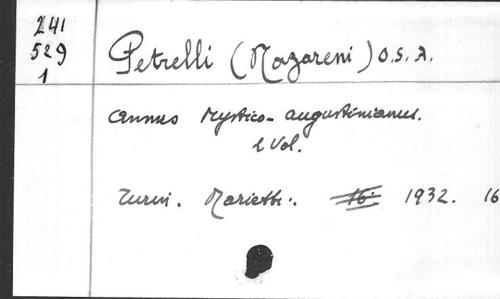 241
529
1
Petrelli (Nazareni) O.S.A.
Annus Mystico-augustinianus.
2 Vol.
Turin. Marietti. 16. 1932. 16